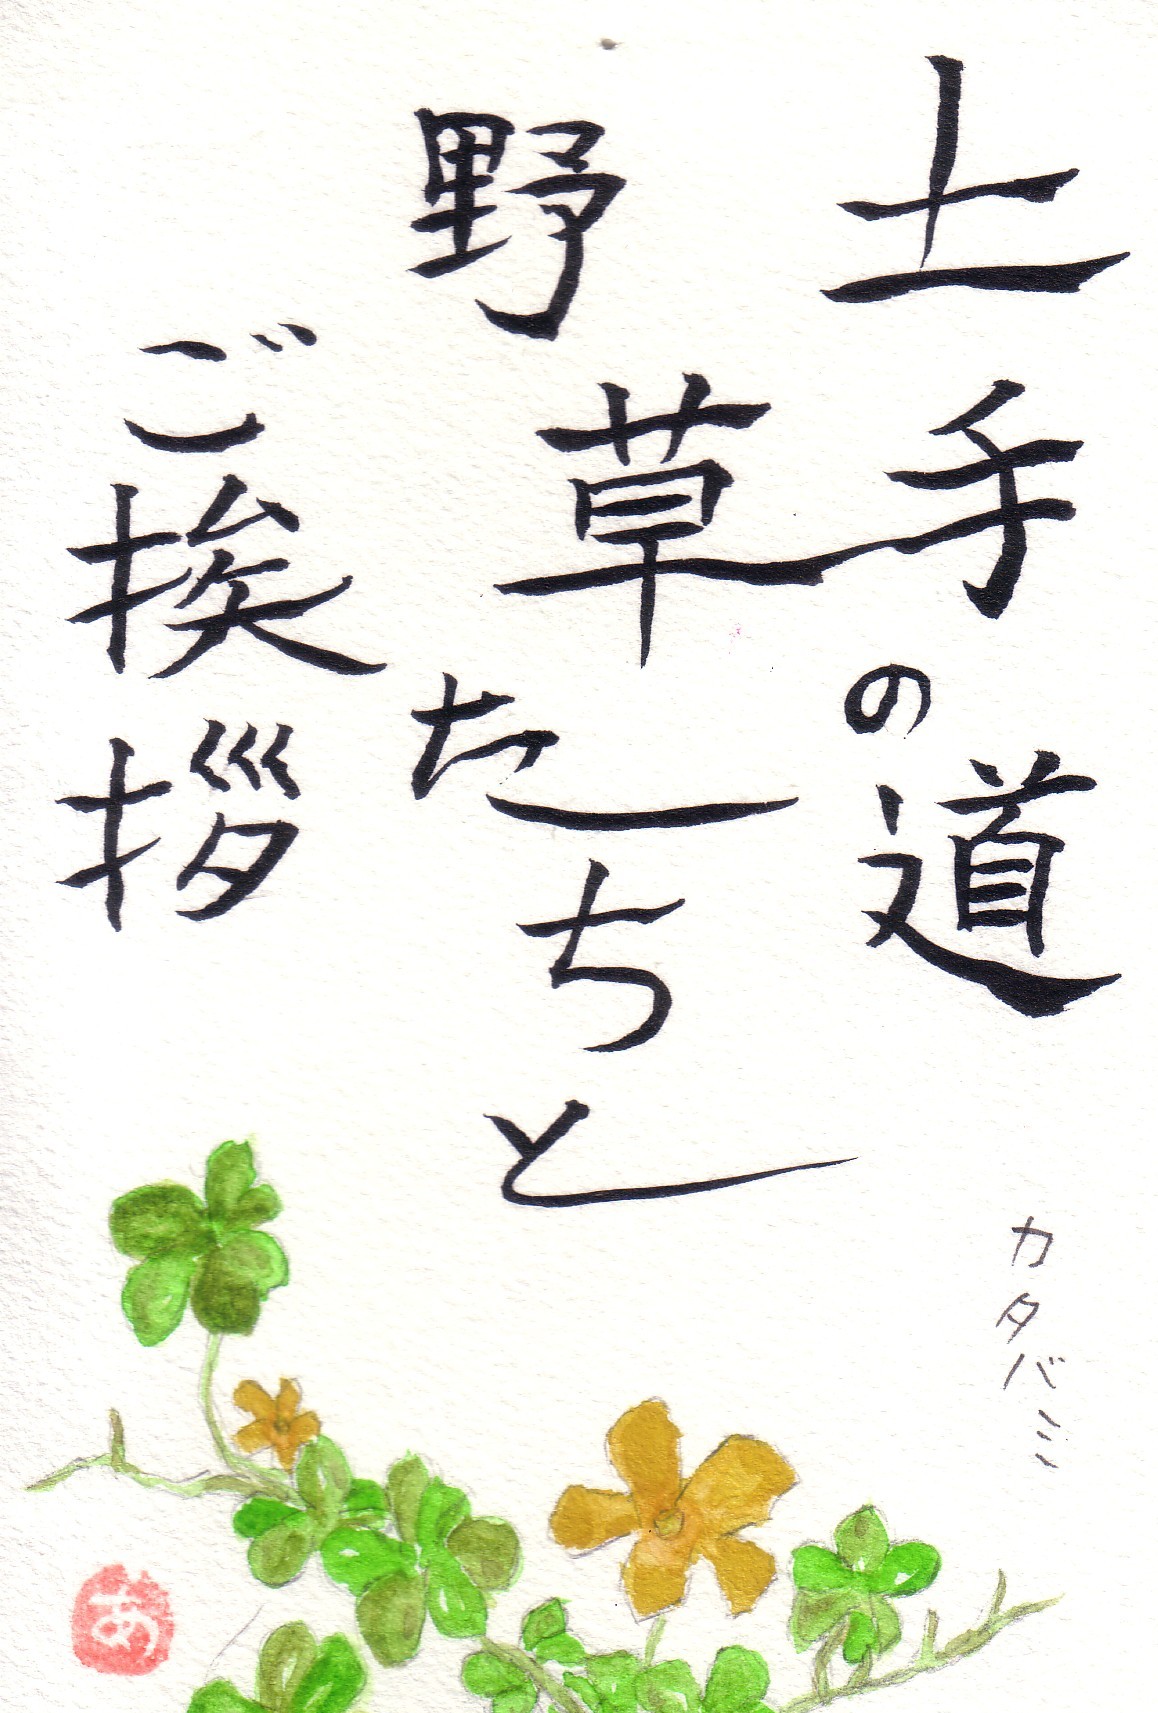 土手の道
野草たちと
ご挨拶
カタバミ
あ